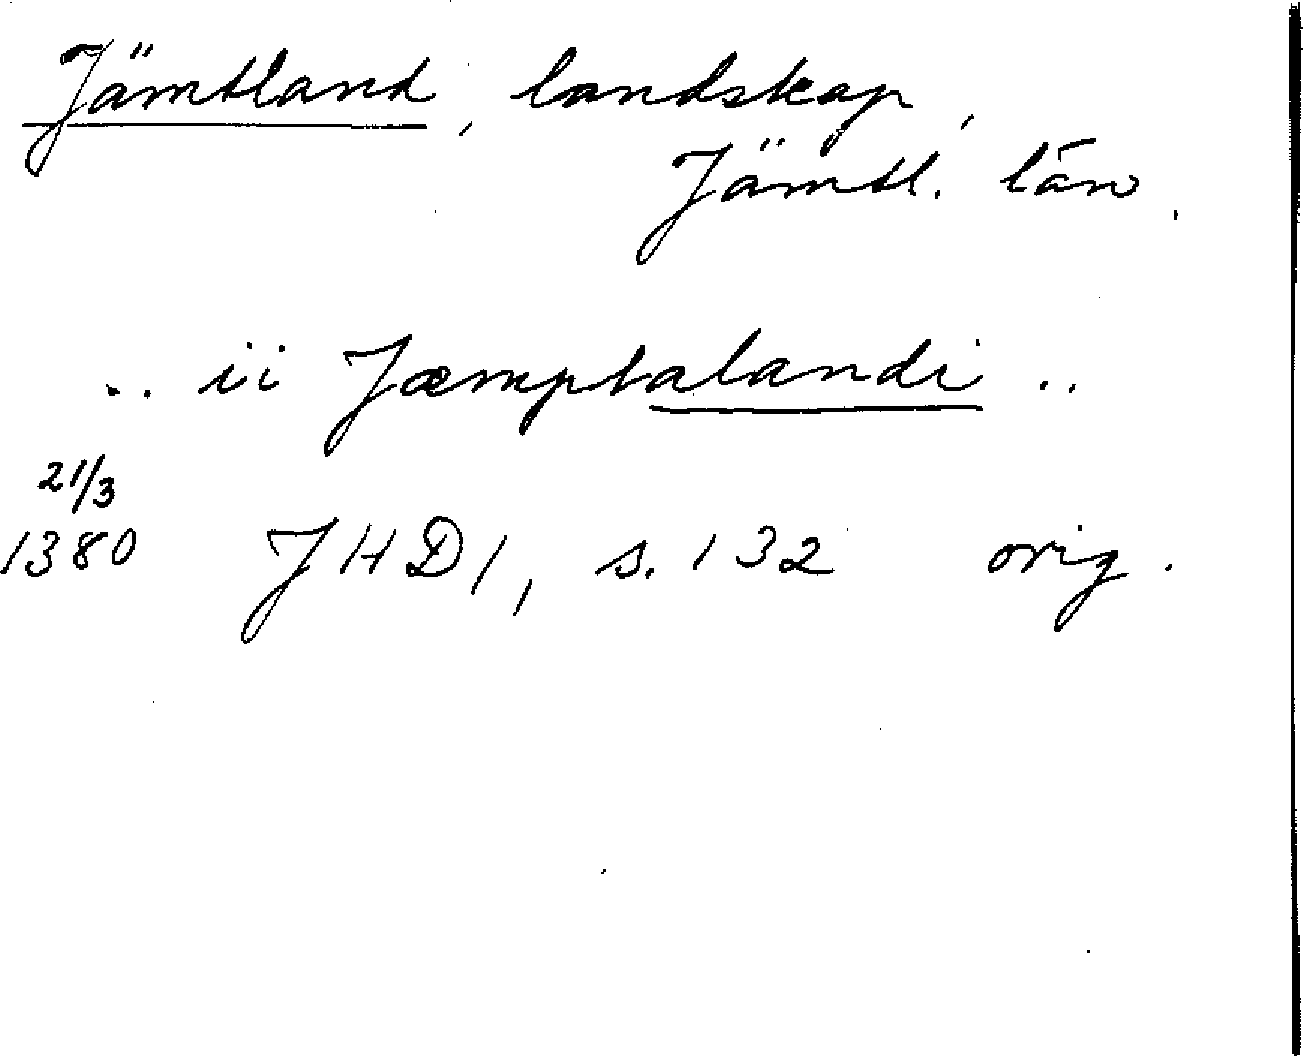 Jämtland, landskap,
Jämtl. län.
.. ii Jæmptalandi ..
21/3
1380 JHD1, s. 132 orig.